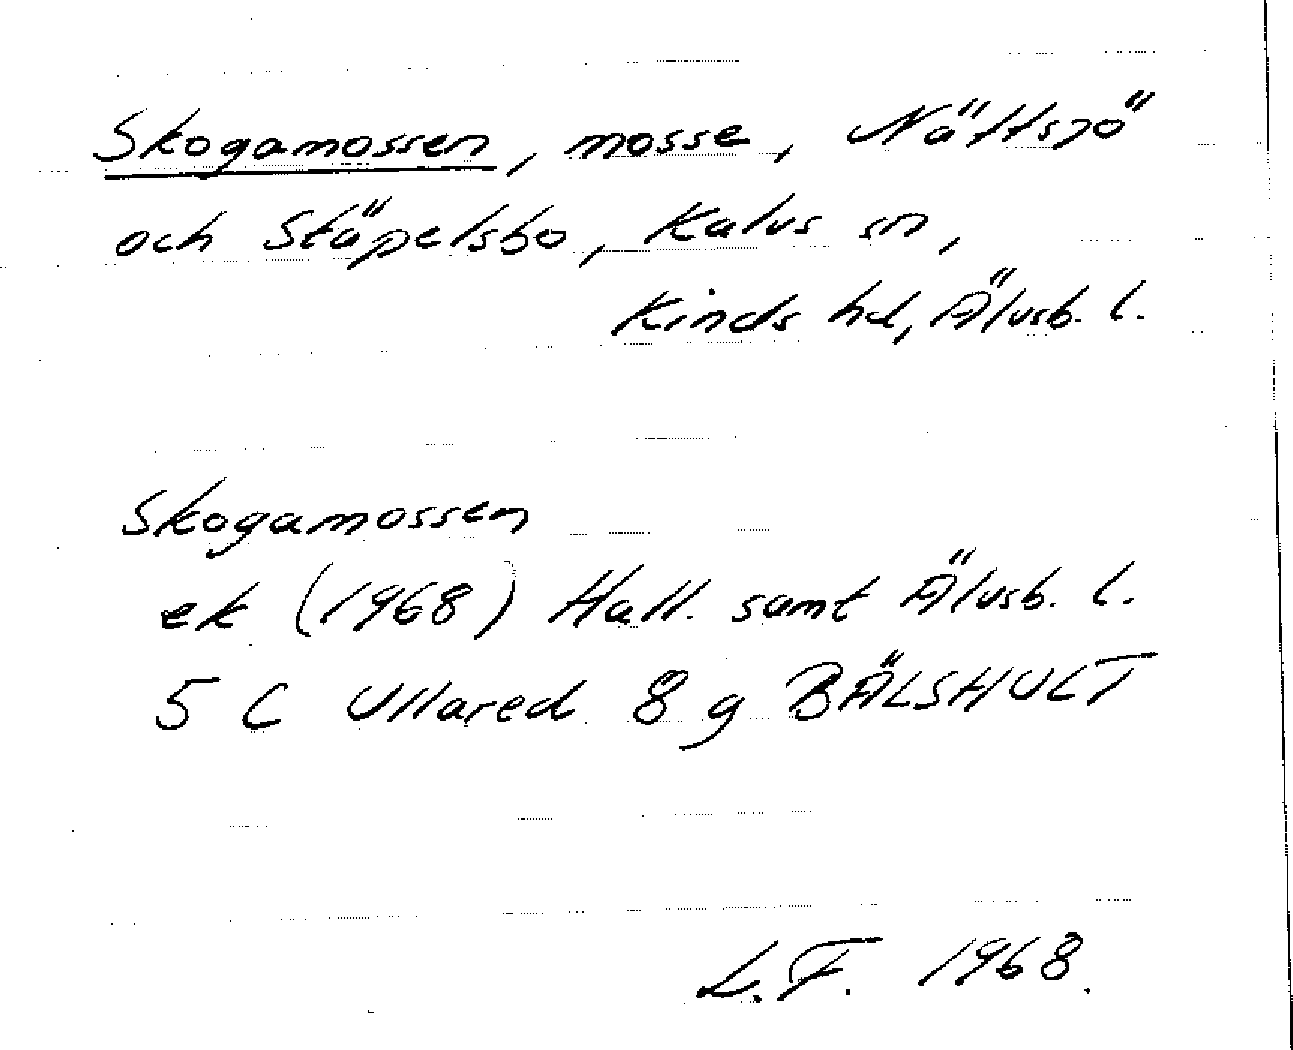 Skogamossen, mosse, Nättsjö
och Stäpelsbo, Kalvs sn,
Kinds hd, Älvsb. l.
Skogamossen
ek (1968) Hall. samt Älvsb. l.
5 C Ullared 8 g BÄLSHULT
L.F. 1968.